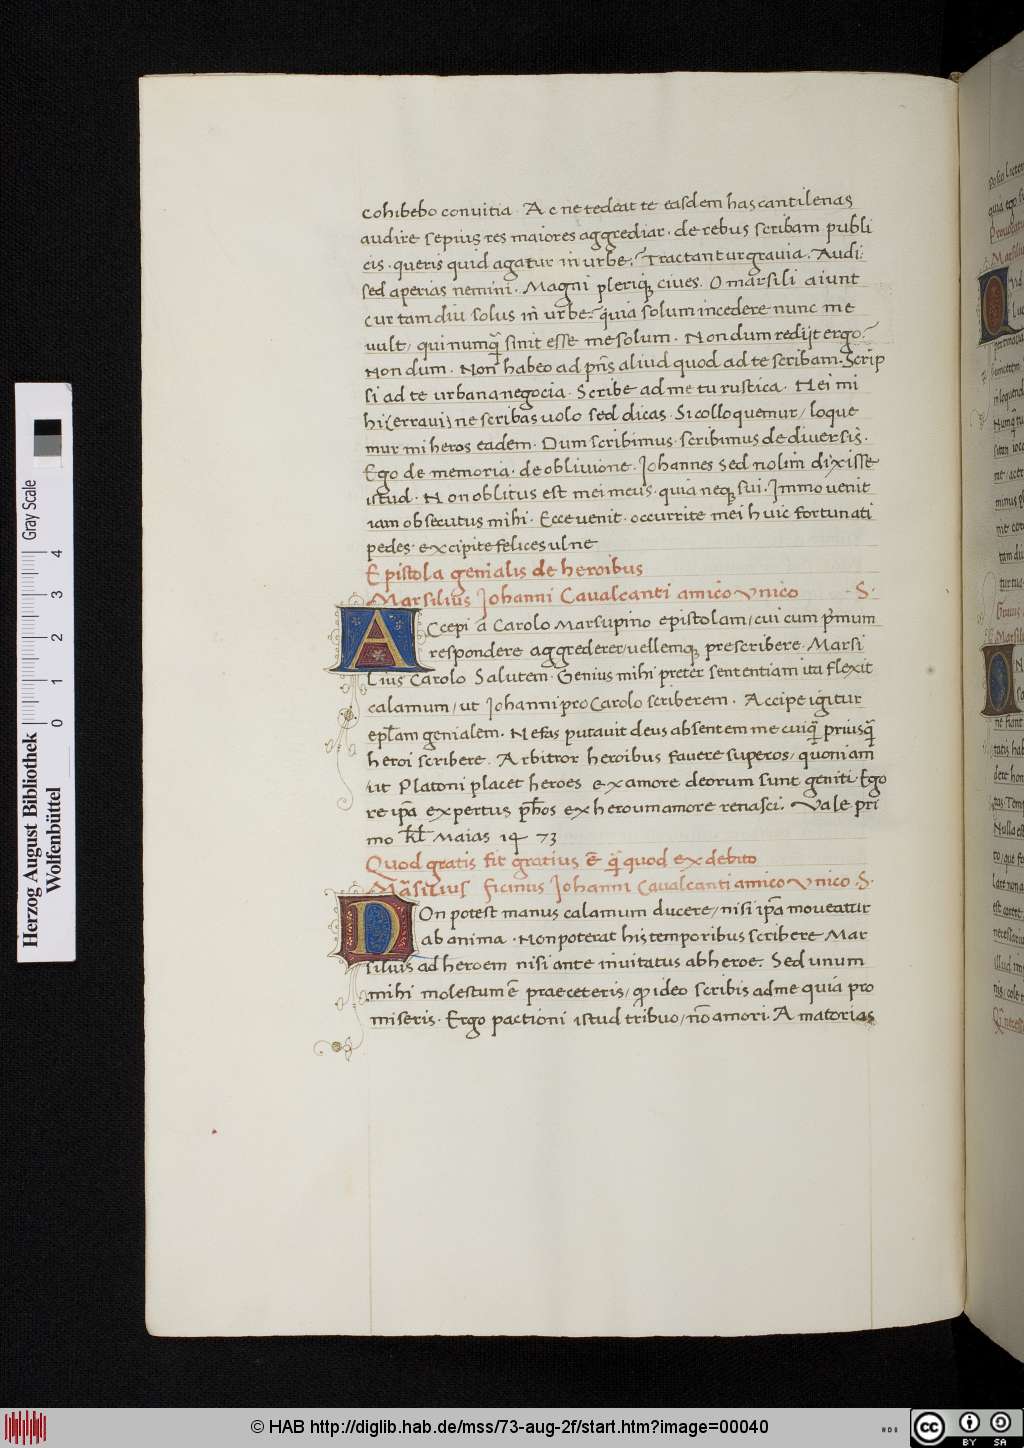 cohibebo convitia · Ac ne tedeat te easdem has cantilenas
audire sepius, res maiores aggrediar · de rebus scribam publi
cis · queris quid agatur in urbe? Tractantur gravia. Audi:
sed aperias nemini. Magni pleriq; cives. O marsili aiunt
cur tam diu solus in urbe? quia solum incedere nunc me
vult, qui numq̃ sinit esse me solum. Nondum redijt ergo?
Nondum. Non habeo ad pñs aliud quod ad te scribam. Scrip
si ad te urbana negocia. Scribe ad me tu rustica. Hei mi
hi (erravi) ne scribas volo sed dicas. Si colloquemur, loque
mur mi heros eadem. Dum scribimus. scribimus de diversis.
Ego de memoria. de oblivione. Johannes sed nolim dixisse
istud. Non oblitus est mei meus. quia neq; sui. Immo venit
iam obsecutus mihi. Ecce venit. occurrite mei huic fortunati
pedes. excipite felices ulne
Epistola genialis de heroibus
Marsilius Johanni Cavalcanti amico unico · S ·
ACcepi a Carolo Marsupino epistolam, cui cum p̃mum
respondere aggrederer, vellemq; prescribere. Marsi
lius Carolo Salutem. Genius mihi preter sententiam ita flexit
calamum, ut Johanni pro Carolo scriberem. Accipe igitur
epl̃am genialem. Nefas putavit deus absentem me cuiq̃ priusq̃
heroi scribere. Arbitror heroibus favere superos, quoniam
ut Platoni placet heroes ex amore deorum sunt geniti. Ego
re ip̃a expertus p̃hos ex heroum amore renasci. Vale pri
mo kl̃ Maias 1473
Quod gratis fit gratius ẽ q̃ quod ex debito
Mãsilius ficinus Johanni Cavalcanti amico unico · S ·
NOn potest manus calamum ducere, nisi ip̃a moveatur
ab anima. Non poterat his temporibus scribere Mar
silius ad heroem nisi ante invitatus ab heroe. Sed unum
mihi molestum ẽ praeceteris, ꝙ ideo scribis ad me quia pro
miseris. Ergo pactioni istud tribuo, nõ amori. Amatorias
Herzog August Bibliothek
Wolfenbüttel
Gray Scale
0 1 2 3 4
© HAB http://diglib.hab.de/mss/73-aug-2f/start.htm?image=00040
cc BY SA